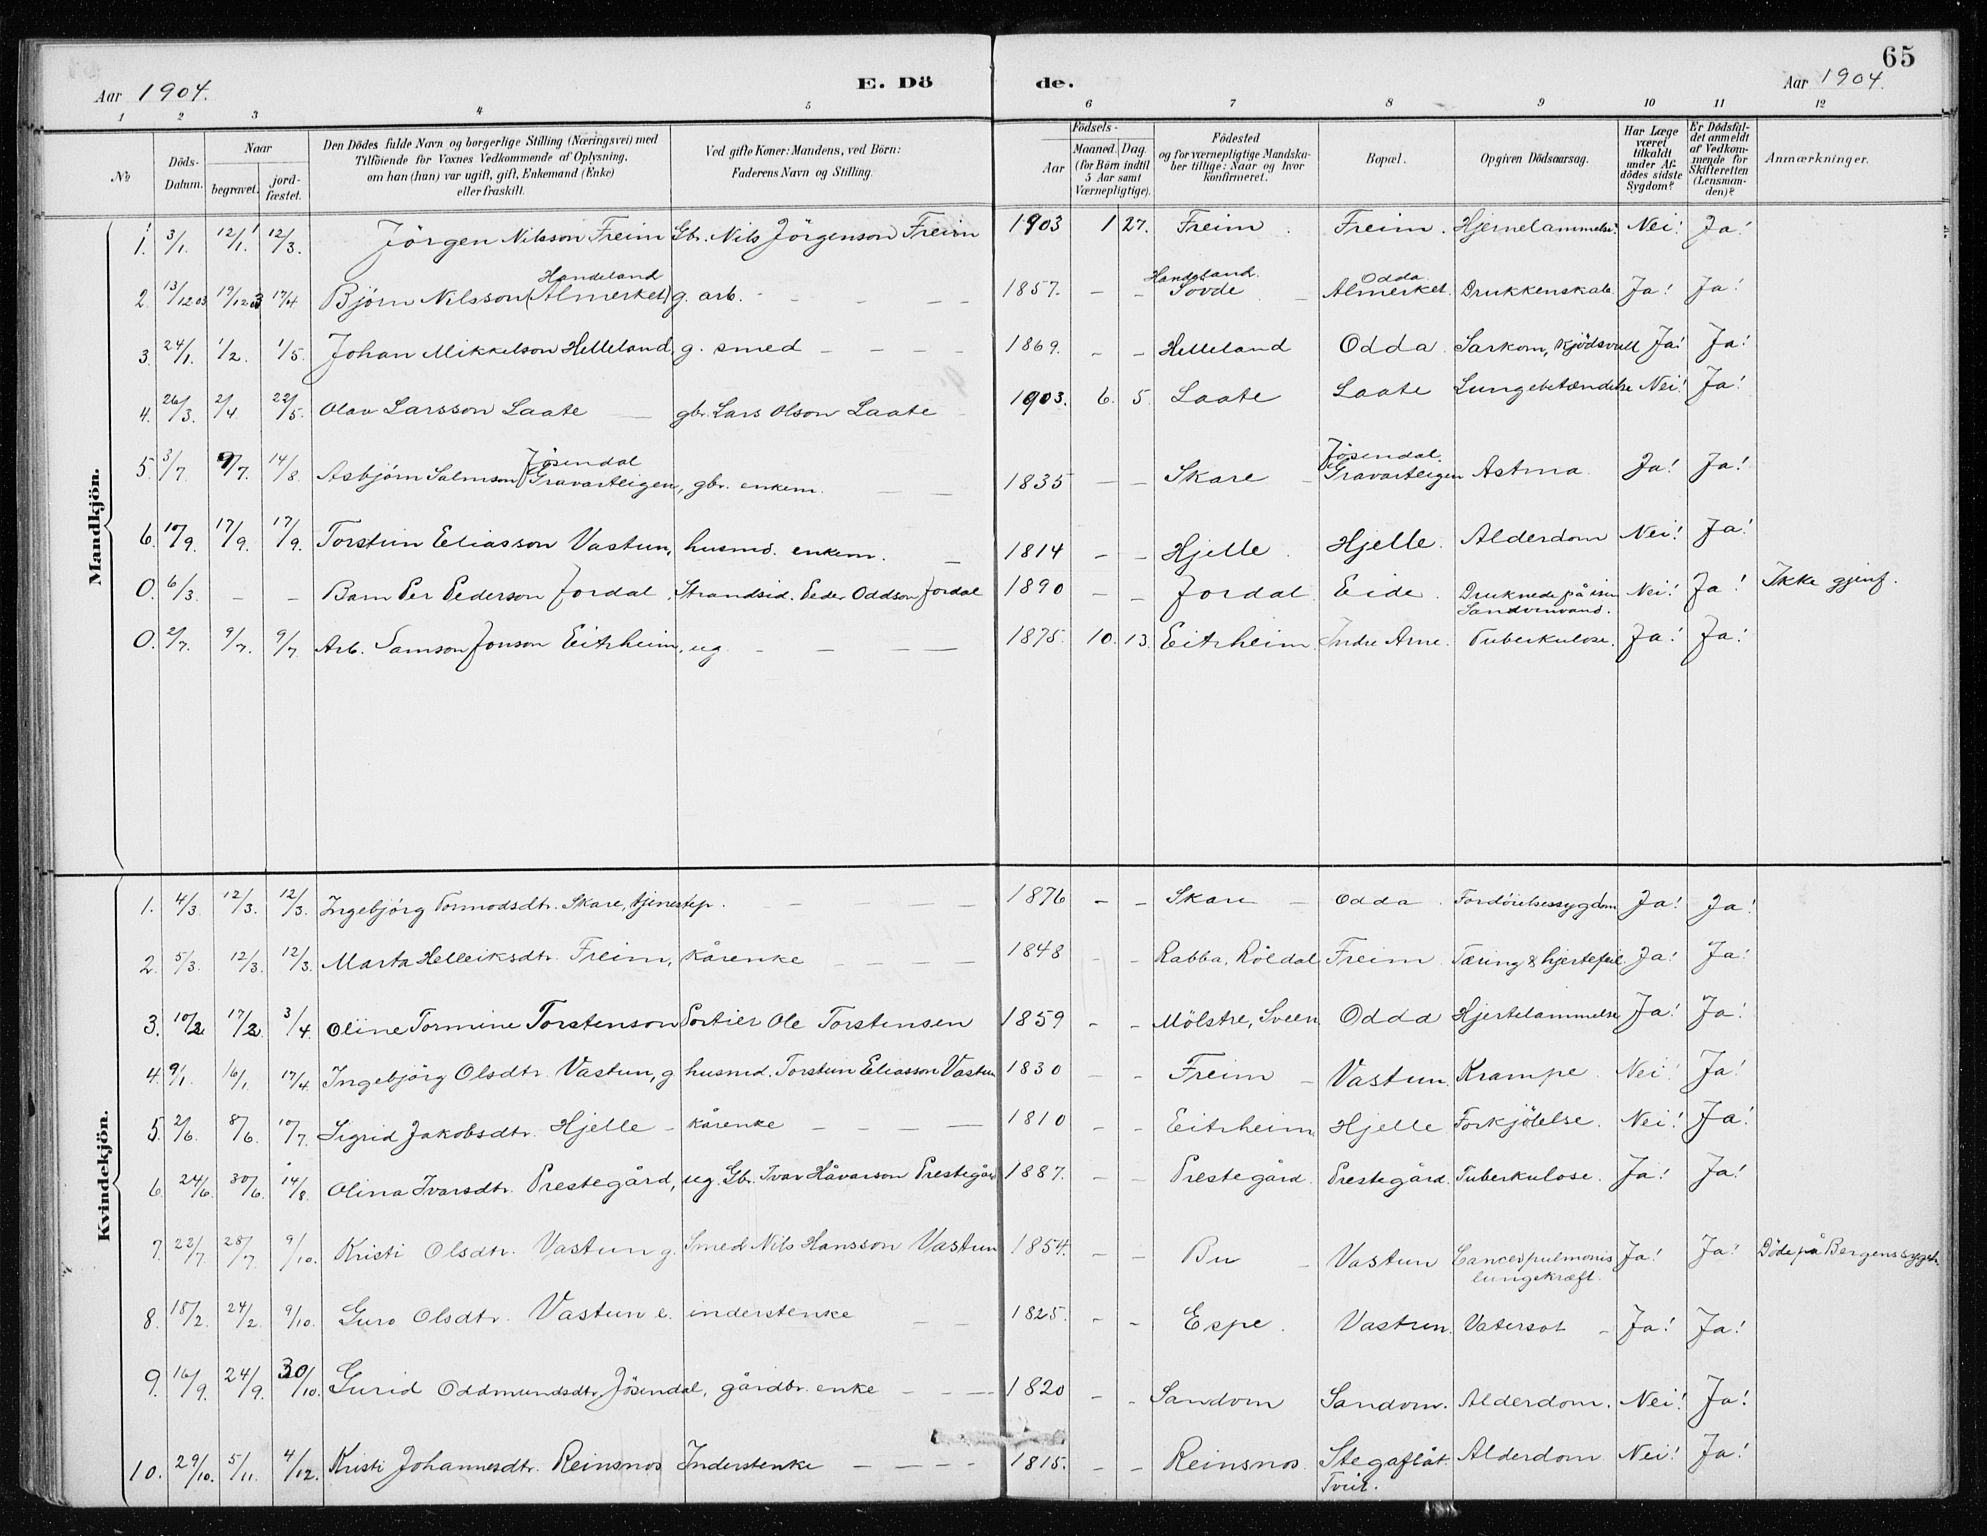 65
Aar 1904. E. Dö de. Aar 1904.
1 2 3 4 5 6 7 8 9 10 11 12
№ Döds-Datum. Naar begravet. jord-fæstet. Den Dödes fulde Navn og borgerlige Stilling (Næringsvei) med Tilföiende for Voxnes Vedkommende af Oplysning, om han (hun) var ugift, gift, Enkemand (Enke) eller fraskilt. Ved gifte Koner: Mandens, ved Börn: Faderens Navn og Stilling. Födsels- Aar Maaned. Dag. (for Börn indtil 5 Aar samt Værnepligtige). Födested og for værnepligtige Mandskaber tillige: Naar og hvor konfirmeret. Bopæl. Opgiven Dödsaarsag. Har Læge været tilkaldt under Afdödes sidste Sygdom? Er Dödsfaldet anmeldt af Vedkommende for Skifteretten (Lensmanden)? Anmærkninger.
Mandkjön.
1. 3/1. 12/1. 12/3. Jörgen Nilsson Freim Gbr. Nils Jörgenson Freim 1903 1 27. Freim. Freim. Hjernelammelse. Nei! Ja!
Handeland Handeland. Odda
2. 13/12 03 19/12 03 17/4 Björn Nilsson (Almerket) g. arb. - - - - 1857. - - Sovde - Almerket. Drukkenskab. Ja! Ja!
3. 24/1. 1/2. 1/5. Johan Mikkelson Helleland, g. smed - - - - 1869. - - Helleland Odda. Sarkom, kjödsvull Ja! Ja!
4. 26/3. 2/4 22/5. Olav Larsson Laate - gbr. Lars Olson Laate - 1903. 6. 5. Laate Laate Lungebetændelse Nei! Ja!
Jösendal Jösendal.
5. 3/7. 9/7. 14/8 Asbjörn Salmson Gravarteigen, gbr. enkem. - - 1835 - - Skare - Gravarteigen Astma. Ja! Ja!
6. 10/9. 17/9. 17/9. Torstein Eliasson Vastun, husmd. enkem. - 1814 - - Hjelle. Hjelle. Alderdom Nei! Ja!
0. 6/3. - - Barn Per Pederson Jordal. Strandsid. Peder Oddson Jordal 1890 - - Jordal. Eide. Druknede på isen Nei! Ja! Ikke gjenf.
Sandvinvand.
0. 2/7. 9/7. 9/7 Arb. Samson Jonson Eitrheim, ug - - - - 1875. 10. 13. Eitrheim. Indre Arne. Tuberkulose. Ja! Ja!
Kvindekjön.
1. 4/3 12/3. 12/3. Ingebjörg Tormodsdtr. Skare, tjenestep. - - - - 1876 - - Skare - Odda. Fordöielsessygdom Ja! Ja!
2. 5/3. 12/3. 12/3. Marta Helleiksdtr. Freim, kårenke - - - - 1848 - - Rabba, Röldal Freim. Tæring & hjertefeil. Ja! Ja!
3. 10/2 17/2 3/4. Oline Tormine Torstenson Portier Ole Torstensen 1859 - - Mölstre, Sveen Odda Hjertelammelse Ja! Ja!
4. 9/1. 16/1. 17/4 Ingebjörg Olsdtr. Vastun, g. husmd. Torstein Eliasson Vastun 1830 - - Freim - Vastun. Krampe. Nei! Ja!
5. 2/6. 8/6. 10/7. Sigrid Jakobsdtr. Hjelle - kårenke - - - - 1810 - - Eitrheim Hjelle Forkjölelse. Nei! Ja!
6. 24/6. 30/6. 14/8. Olina Ivarsdtr. Prestegård, ug. Gbr. Ivar Håvarson Prestegård 1887. - - Prestegård. Prestegård. Tuberkulose. Ja! Ja!
7. 22/7 28/7 9/10. Kristi Olsdtr. Vastun g. Smed Nils Hansson Vastun 1854. - - Bu - Vastun Cancer pulmonis Ja! Ja! Döde på Bergens sygeh.
lungekræft.
8. 18/2. 24/2. 9/10. Guro Olsdtr. Vastun e. inderstenke - - 1825. - - Espe. Vastun. Vatersot - Ja! Ja!
9. 16/9. 24/9. 30/10. Gurid Oddmundsdtr. Jösendal, gårdbr. enke - - - 1820 - - Sandvin Sandvin. Alderdom. Nei! Ja!
10. 29/10. 5/11. 4/12. Kristi Johannesdtr. Reinsnos Inderstenke - - - - 1815. - - Reinsnos. Stegaflåt. Alderdom Nei! Ja!